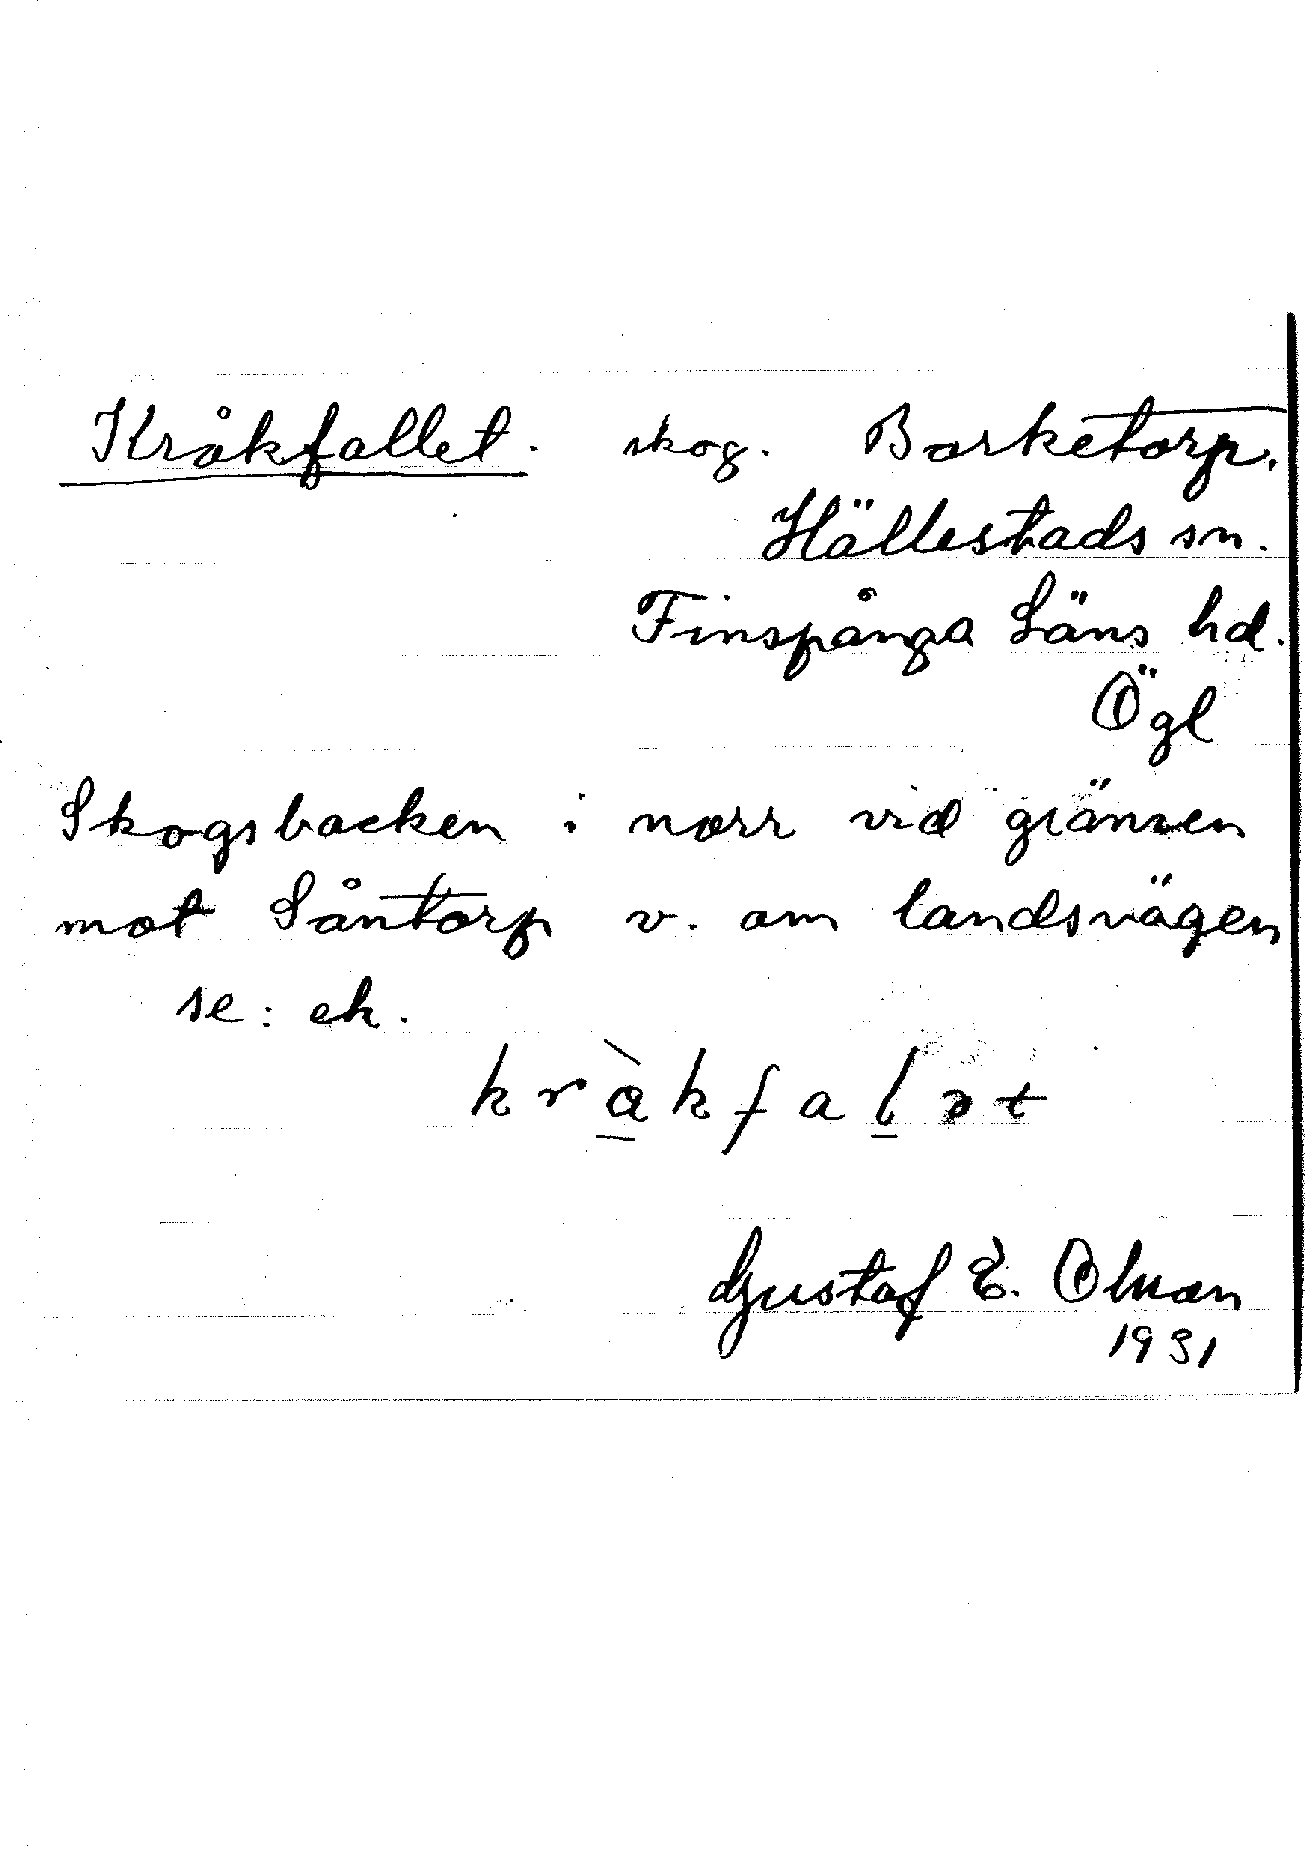 Kråkfallet. skog. Borketorp.
Hällestads sn.
Finspånga Läns hd.
Ögl
Skogsbacken i norr vid gränsen
mot Såntorp v. om landsvägen
se: ek.
kråkfalət
Gustaf E. Olsson
1931